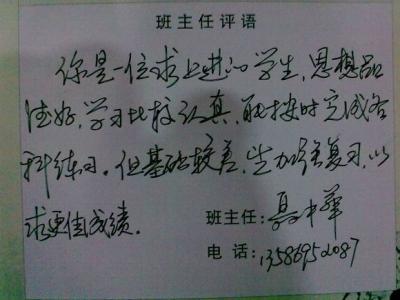 班主任评语
你是一位求上进的学生，思想品
德好，学习比较认真，能按时完成各
科练习。但基础较差，望加强复习，以
求更佳成绩。
班主任：聂中华
电话：13586952087